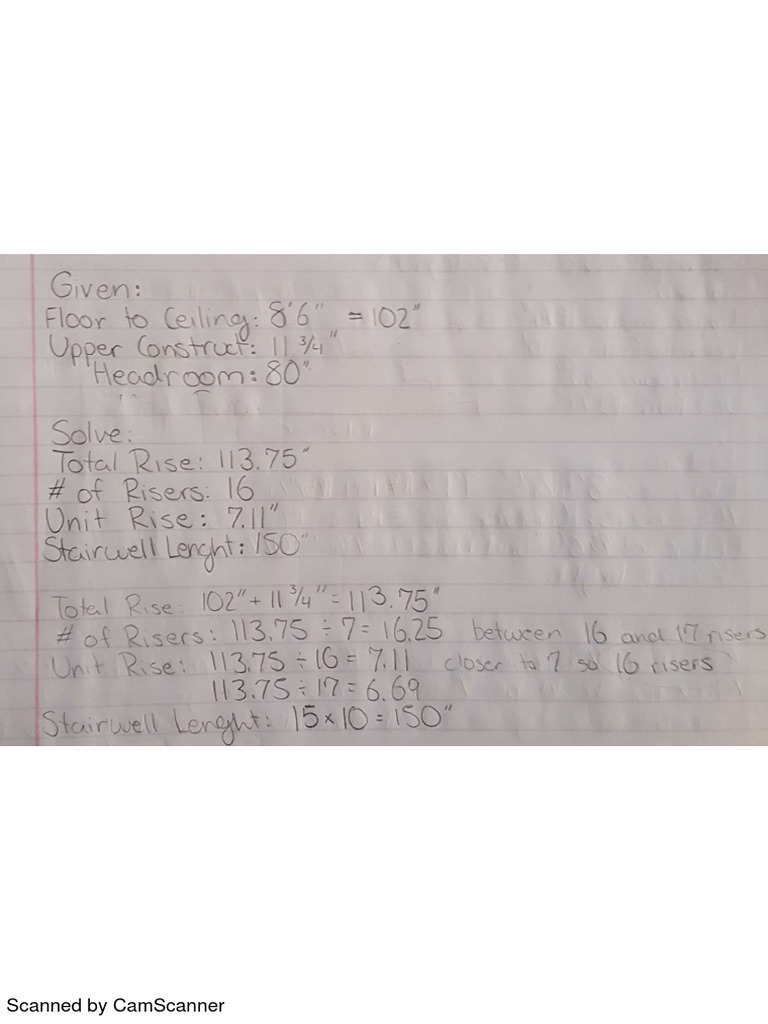 Given:
Floor to Ceiling: 8'6" = 102"
Upper Construct: 11 3/4"
Headroom: 80"
Solve:
Total Rise: 113.75"
# of Risers: 16
Unit Rise: 7.11"
Stairwell Lenght: 150"
Total Rise: 102" + 11 3/4" = 113.75"
# of Risers: 113.75 ÷ 7 = 16.25 between 16 and 17 risers
Unit Rise: 113.75 ÷ 16 = 7.11 closer to 7 so 16 risers
113.75 ÷ 17 = 6.69
Stairwell Lenght: 15 x 10 = 150"
Scanned by CamScanner